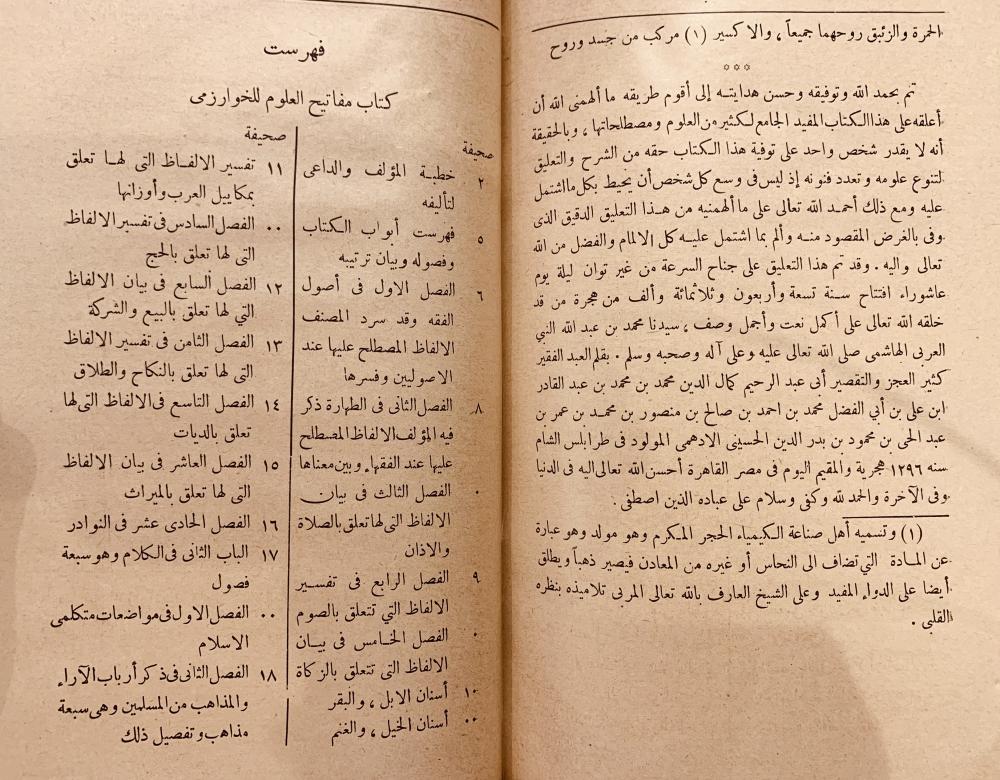 الحمرة والزئبق روحهما جميعاً ، والاكسير (١) مركب من جسد وروح
☼☼☼
تم بحمد الله وتوفيقه وحسن هدايته إلى أقوم طريقه ما ألهمنى الله أن
أعلقه على هذا الكتاب المفيد الجامع لكثير من العلوم ومصطلحاتها ، وبالحقيقة
أنه لا يقدر شخص واحد على توفية هذا الكتاب حقه من الشرح والتعليق
لتنوع علومه وتعدد فنونه إذ ليس فى وسع كل شخص أن يحيط بكل ما اشتمل
عليه ومع ذلك أحمد الله تعالى على ما ألهمنيه من هذا التعليق الدقيق الذى
وفى بالغرض المقصود منه وألم بما اشتمل عليه كل الالمام والفضل من الله
تعالى واليه . وقد تم هذا التعليق على جناح السرعة من غير توان ليلة يوم
عاشوراء افتتاح سنة تسعة وأربعون وثلاثمائة وألف من هجرة من قد
خلقه الله تعالى على أكمل نعت وأجمل وصف ، سيدنا محمد بن عبد الله النبي
العربى الهاشمى صلى الله تعالى عليه وعلى آله وصحبه وسلم . بقلم العبد الفقير
كثير العجز والتقصير أبى عبد الرحيم كمال الدين محمد بن محمد بن عبد القادر
ابن على بن أبي الفضل محمد بن احمد بن صالح بن منصور بن محمد بن عمر بن
عبد الحى بن محمود بن بدر الدين الحسينى الادهمى المولود فى طرابلس الشام
سنه ١٢٩٦ هجرية والمقيم اليوم فى مصر القاهرة أحسن الله تعالى اليه فى الدنيا
وفى الآخرة والحمد لله وكفى وسلام على عباده الذين اصطفى .
(١) وتسميه أهل صناعة الكيمياء الحجر المكرم وهو مولد وهو عبارة
عن المادة التي تضاف الى النحاس أو غيره من المعادن فيصير ذهباً ويطلق
أيضا على الدواء المفيد وعلى الشيخ العارف بالله تعالى المربى تلاميذه بنظره
القلبى .
فهرست
كتاب مفاتيح العلوم للخوارزمى
صحيفة
٢ خطبة المؤلف والداعى
لتأليفه
٥ فهرست أبواب الكتاب
وفصوله وبيان ترتيبه
٦ الفصل الاول فى أصول
الفقه وقد سرد المصنف
الالفاظ المصطلح عليها عند
الاصوليين وفسرها
٨ الفصل الثانى فى الطهارة ذكر
فيه المؤلف الالفاظ المصطلح
عليها عند الفقهاء وبين معناها
٠ الفصل الثالث فى بيان
الالفاظ التى لها تعلق بالصلاة
والاذان
٩ الفصل الرابع فى تفسير
الالفاظ التي تتعلق بالصوم
٠ الفصل الخامس فى بيان
الالفاظ التى تتعلق بالزكاة
١٠ أسنان الابل ، والبقر
٠٠ أسنان الخيل ، والغنم
صحيفة
١١ تفسير الالفاظ التى لها تعلق
بمكاييل العرب وأوزانها
٠٠ الفصل السادس فى تفسير الالفاظ
التى لها تعلق بالحج
١٢ الفصل السابع فى بيان الالفاظ
التي لها تعلق بالبيع والشركة
١٣ الفصل الثامن فى تفسير الالفاظ
التى لها تعلق بالنكاح والطلاق
١٤ الفصل التاسع فى الالفاظ التى لها
تعلق بالديات
١٥ الفصل العاشر فى بيان الالفاظ
التى لها تعلق بالميراث
١٦ الفصل الحادى عشر فى النوادر
١٧ الباب الثانى فى الكلام وهو سبعة
فصول
٠٠ الفصل الاول فى مواضعات متكلمى
الاسلام
١٨ الفصل الثانى فى ذكر أرباب الآراء
والمذاهب من المسلمين وهى سبعة
مذاهب وتفصيل ذلك